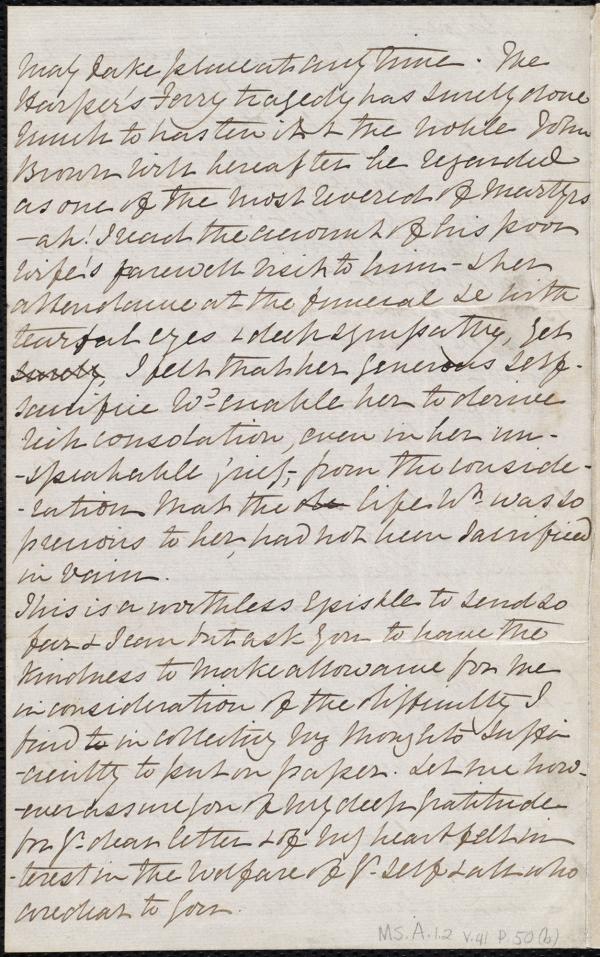 may take place at any time. The
Harper's Ferry tragedy has surely done
much to hasten it & the noble John
Brown will hereafter be regarded
as one of the most revered of Martyrs
- ah! I read the account of his poor
wife's farewell visit to him - & her
attendance at the funeral &c with
tearful eyes & deep sympathy, yet
surely, I felt that her generous self-
sacrifice wd enable her to derive
rich consolation, even in her un-
-speakable grief, from the conside-
-ration that the life wh. was so
precious to her, had not been sacrificed
in vain.
This is a worthless Epistle to send so
far & I can but ask you to have the
kindness to make allowance for me
in consideration of the difficulty I
find to in collecting my thoughts suffi-
-ciently to put on paper. Let me how-
-ever assure you of my deep gratitude
for yr. dear letter & of my heartfelt in-
-terest in the welfare of yr. self & all who
are dear to you.
MS. A. 1.2 v. 41 p. 50 (b)